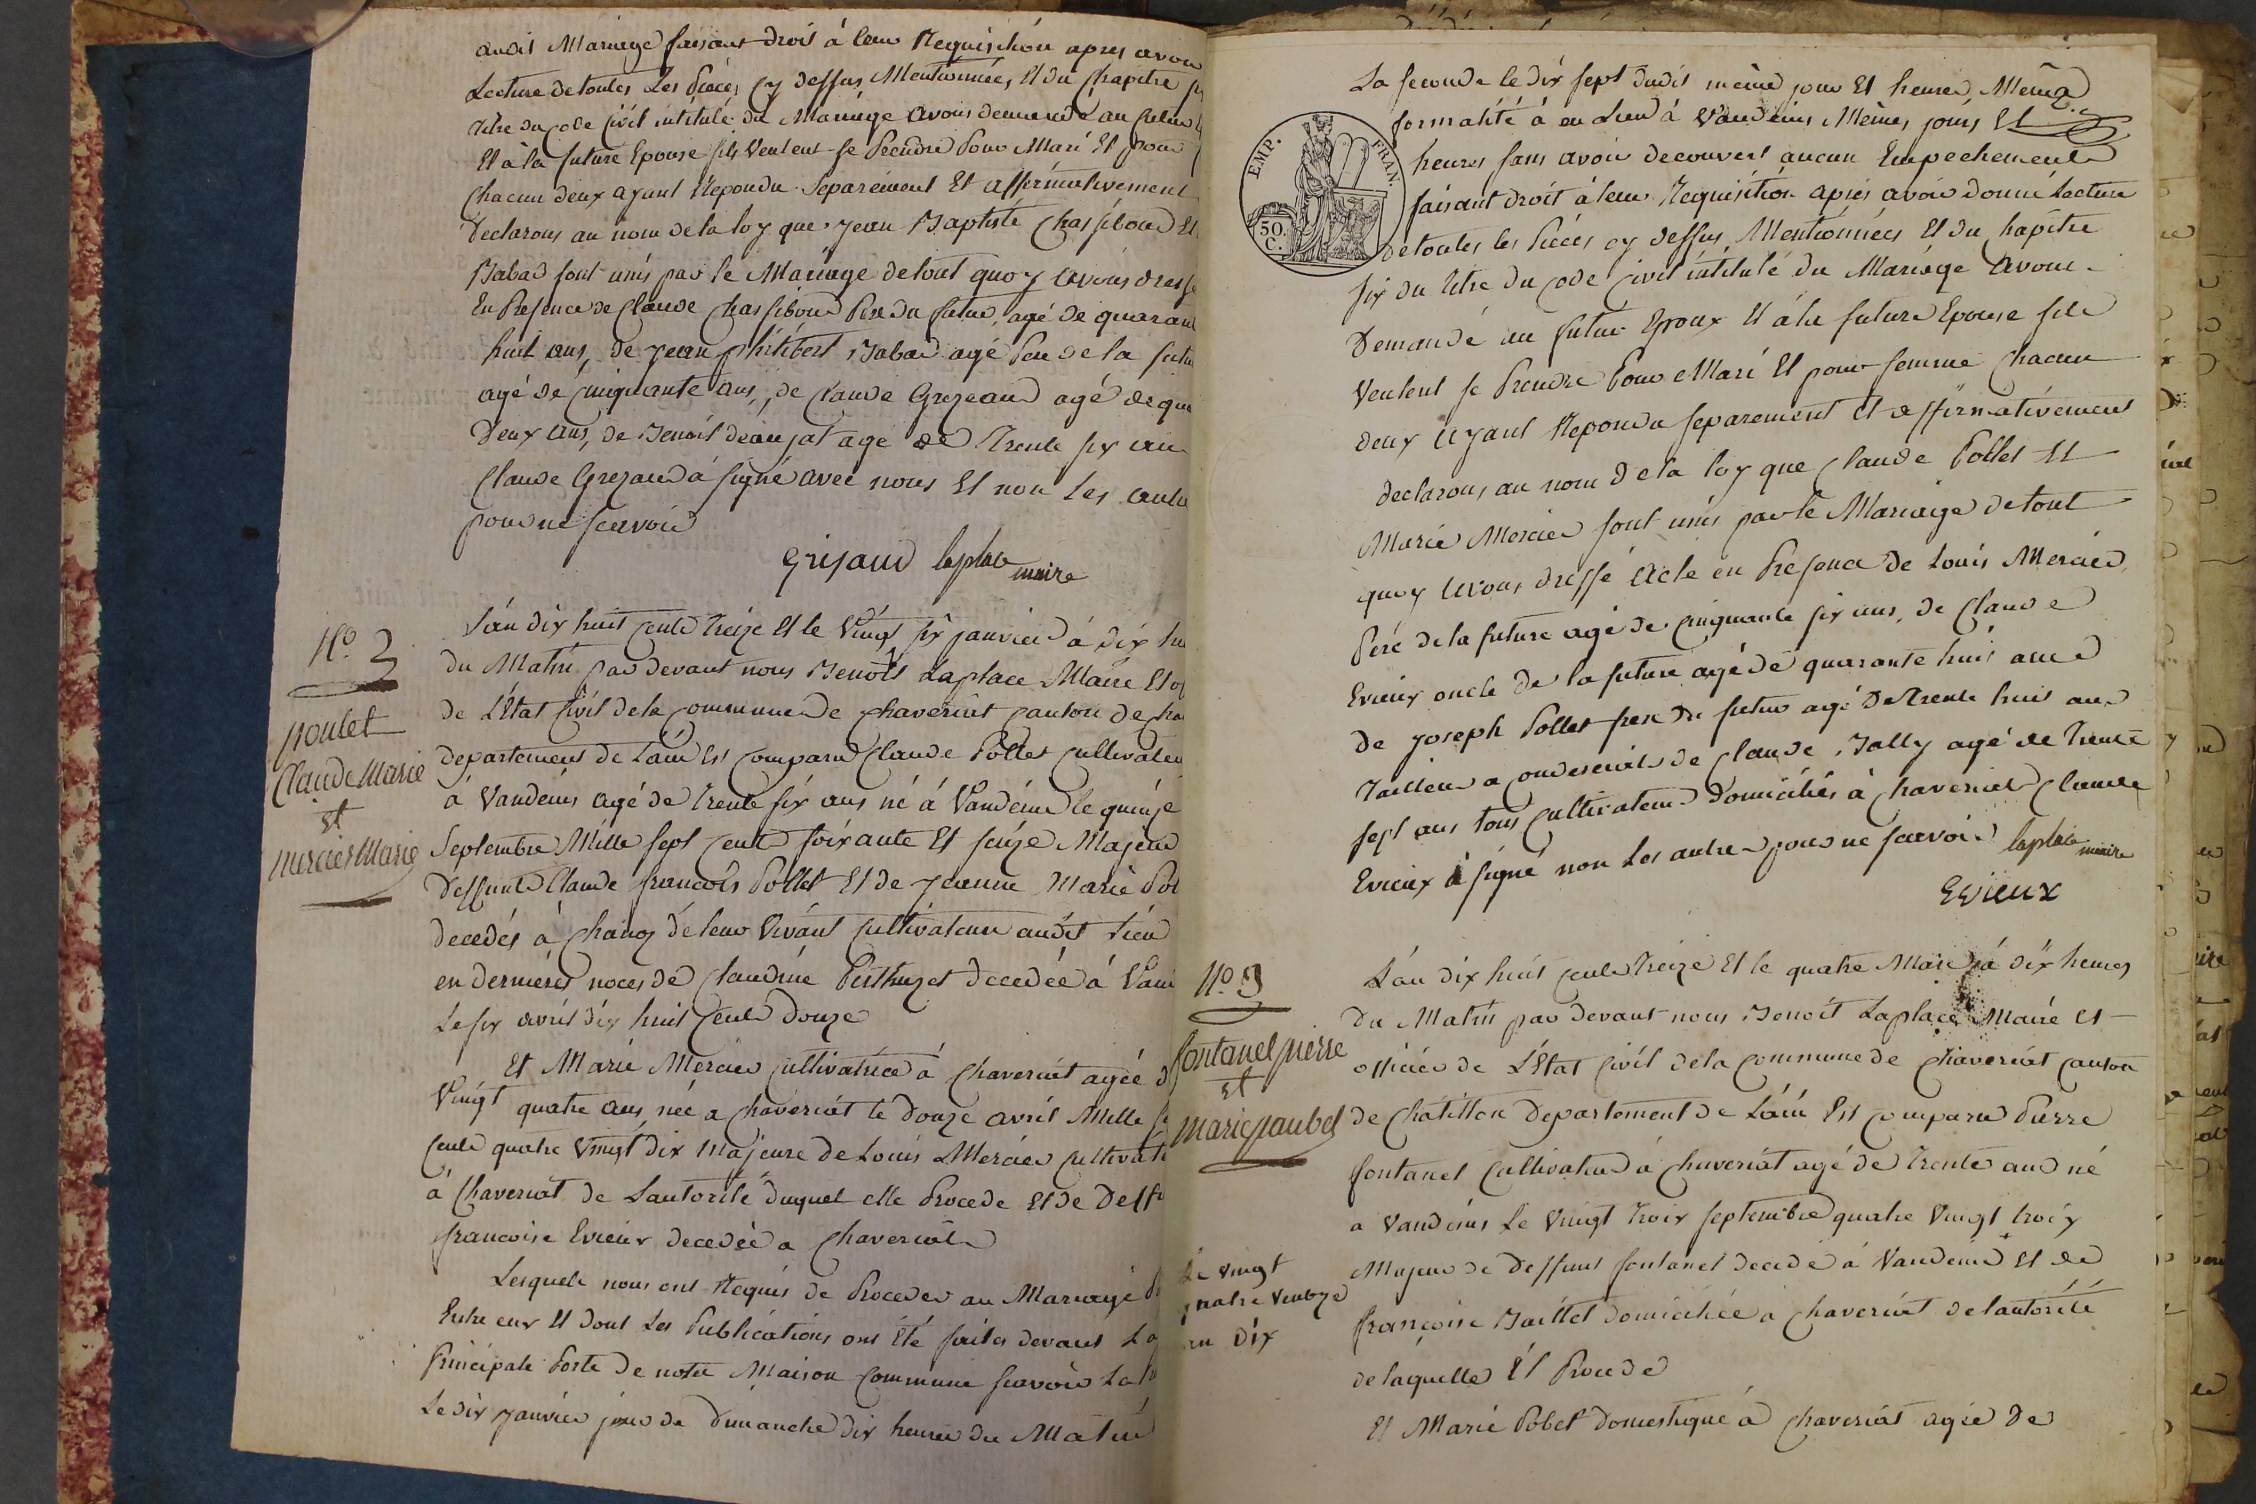 audit Mariage faisant droit à leur Requisition apres avoir
Lecture detoutes Les Pieces cy dessus Mentionnées, Et du Chapitre
titre du code Civil intitulé du Mariage avons demandé au futur
Et à la future Epouse sils veulent se Prendre Pour Mari Et pour
Chacun deux ayant Repondu Separément Et affirmativement
Declarons au nom dela loy que Jean Baptiste Chassiboud Et
Babad sont unis par le Mariage detout quoy avons dressé
En Presence de Claude Chassiboud Pere du futur, agé de quarant
huit ans, de Jean Philibert Babad agé Pere de la futu
agé de cinquante ans, de Claude Grezeaud agé de qua
deux ans, de Benoit deaujat agé de Trente six an
Claude Grezaud à signé avec nous Et non Les autr
pour ne scavoir
Grisaud laplace maire
No. 2
poulet
Claude Marie
et
mercier Marie
L'an dix huit cent Treize Et le Vingt six janvier à dix heu
du Matin par devant nous Benoit Laplace Maire Et of
de L'Etat Civil dela Commune de Chaveriat Canton de Cha
departement de Lain Est Comparu Claude Pollet Cultivateur
à Vandeins agé de Trente six ans né à Vandeins le quinze
Septembre Mille sept cent soixante Et seize Majeur
Deffunt Claude francois Pollet Et de Jeanne Marie Pol
decedés à Chanoz de leur Vivant Cultivateurs audit Lieu
en dernieres noces de Claudine Perthuzet decedée à Van
Le six avril dix huit Cent Douze
Et Marie Mercier Cultivatrice à Chaveriat agée d
Vingt quatre ans née a Chaveriat le Douze avril Mille se
Cent quatre Vingt dix Majeure de Louis Mercier Cultivate
à Chaveriat de Lautorité duquel elle Procede Et de Deff
francoise Evieux decedée a Chaveriat
Lesquels nous ont Requis de Proceder au Mariage
Entre eux Et dont Les Publications ont Eté faites devant La
Principale Porte de notre Maison Commune scavoir La
Le dix janvier jour de Dimanche dix heures du Matin
EMP. FRAN.
50. C.
La seconde le dix sept dudit même jour Et heures Même
formalité à eu Lieu à Vandeins Mêmes jours Et
heures sans avoir decouvert aucun Empechement
faisant droit à leur Requisition apres avoir donné Lecture
detoutes les Pieces cy dessus Mentionnées Et du Chapitre
six du titre du Code Civil intitulé du Mariage avons
Demandé au futur Epoux Et à la future Epouse sils
Veulent se Prendre Pour Mari Et pour femme Chacun
deux ayant Repondu separement Et affirmativement
declarons au nom dela loy que Claude Pollet Et
Marie Mercier sont unis par le Mariage detout
quoy avons dressé acte en Presence de Louis Mercier
Peré de la future agé de cinquante six ans, de Claude
Evieux oncle de la future agé de quarante huit ans
de Joseph Pollet frere du futur agé de Trente huit ans
Tailleur a de Claude Bally agé de Trente
sept ans tous Cultivateurs domiciliés à Chaveriat Claude
Evieux à signé non Les autres pour ne scavoir laplace maire
Evieux
No. 3
fontanel pierre
et
marie paubel
L'an dix huit Cent Treize Et le quatre Mars à dix heures
Du Matin par devant nous Benoit Laplace Maire Et
officier de L'Etat Civil dela Commune de Chaveriat Canton
de Chatillon Departement de Lain Est Comparu Pierre
fontanel Cultivateur à Chaveriat agé de Trente ans né
a Vandeins Le Vingt Trois septembre quatre Vingt trois
Majeur de Deffunt fontanel decedé à Vandeins Et de
françoise Baillet domiciliée a Chaveriat de lautorité
delaquelle Il Procede
Et Marie Pobel Domestique à Chaveriat agée De
Le vingt
quatre
an Dix